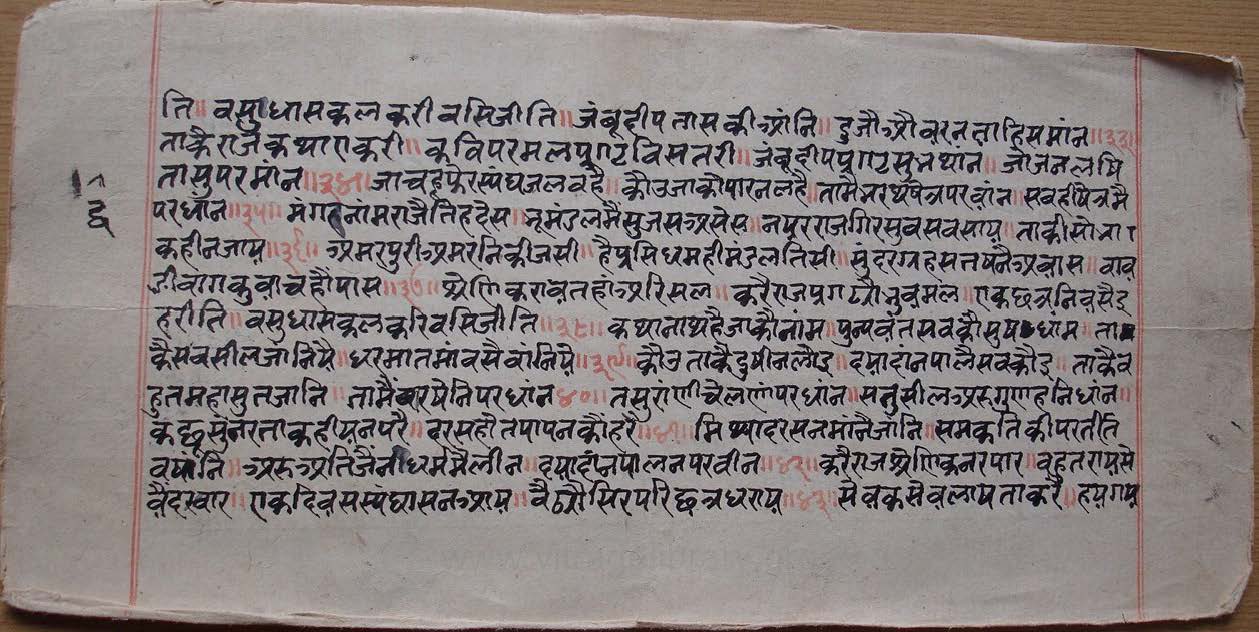 ति॥ वसुधासकलकरीवसिजीति॥ जंबूद्वीपतासकीआंनि॥ दुजौऔवरनताहिसमांन॥३३॥
ताकैराजकथाराकरी॥ कविपरमलप्रगटविसतरी॥ जंबूद्वीपप्रगटसुभथांन॥ जोजनलषि
तासुपरमांन॥३४॥ जाचहूफेरस्यंघजलवहै॥ कौउजाकौपारनलहै॥ तामै षेत्रपरवांन॥ सवदीषेत्रमै
परधांन॥३५॥ मंगहनांमराजैतिहदेस॥ भूमंडलमैसुजसअसेस॥ नयरराजगिरसुवसवसाय॥ ताकीसोभा
कहीनजाय॥३६॥ अमरपुरीअमरनिकीजसी॥ हैप्रसिधमहीमंडलतिसी॥ सुंदरग्रहसतषनैअवास॥ वाव
डीवागकुवाचहौंपास॥३७॥ श्रेणिकरावतहांअरिसल॥ करैराजप्रगट्यौभुवमल॥ राकछत्रनिवसैइ
हरीति॥ वसुधासकलकरिवसिजीति॥३८॥ कथानाथहैजाकौनांम॥ पुन्यवंतसवकौसुषधांम॥ ता
कैसवसीलजानियै॥ धरमातमांवसैवांनियै॥३९॥ कौउताकैदुषीनलौइ॥ दयादांनपालैसवकौइ॥ ताकैव
हुतमहासुतजानि॥ तामै षेनिपरधांन॥४०॥ तसुरांणीचैलणांपरधांन॥ सतुसीलअरुगुणहनिधांन॥
कछूसुनरताकहीयनपरै॥ दरसहौतपापनकौंहरै॥४१॥ मिथ्यादरसनमांनैजांनि॥ समकतिकीपरतीति
वषांनि॥ अरुअतिजैनीधर्ममैलीन॥ दयादांनपालनपरवीन॥४२॥ करैराजश्रेणिकनरपार॥ वहुतरायसे
वैदरवार॥ राकदिवसस्यंघासनआय॥ वैठ्यौसिरपरिछत्रधराय॥४३॥ सेवकसेवलायताकरै॥ हयगय